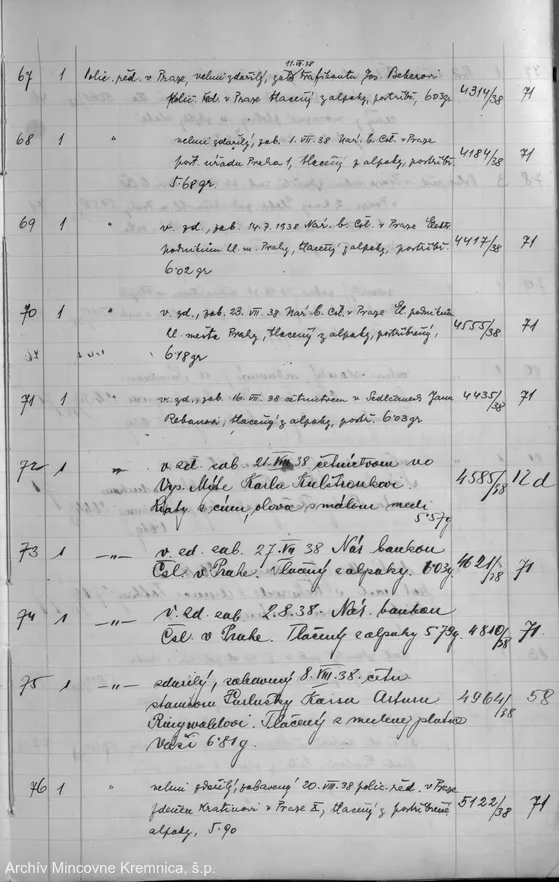 11.VI.38
67 1 Polic. řed. v Praze, velmi zdařilý, zab. trafikantu Jos. Bekerovi
Polic. řed. v Praze tlačený z alpaky, postříb., 6·03 gr 4314/38 71
68 1 " velmi zdařilý, zab. 1. VII. 38 Nár. b. Čsl. v Praze
pošt. úřadu Praha 1, tlačený z alpaky, postříb. 4184/38 71
5·68 gr.
69 1 " v. zd., zab. 14.7.1938 Nár. b. Čsl. v Praze Elektr.
podnikům hl. m. Prahy, tlačený z alpaky, postříbř. 4417/38 71
6·02 gr
70 1 " v. zd., zab. 23. VII. 38 Nár. b. Čsl. v Praze El. podnikům
hl. města Prahy, tlačený z alpaky, postříbřený, 4555/38 71
6·18 gr
71 1 " v. zd., zab. 16. VII. 38 četnictvem v Sedlčanech Janu
Rebanovi, tlačený z alpaky, postř. 6·03 gr 4435/38 71
72 1 " v zd. zab. 21. VII 38 četníctvom vo
Vys. Mýte Karla 4585/38 12 d
liaty z cínu, olova s málom medi
5·57 g
73 1 -"- v. zd. zab. 27. VII 38 Nár. bankou
Čsl. v Prahe. Tlačený z alpaky. 6·03 g. 4621/38 71
74 1 -"- v. zd. zab. 2.8.38. Nár. bankou
Čsl. v Prahe. Tlačený z alpaky 5·79 g. 4810/38 71.
75 1 -"- zdarilý, zabavený 8. VIII. 38. četn.
stanicou Arturu 4964/38 58
Ringwaldovi. Tlačený z
6·81 g.
76 1 " velmi zdařilý, zabavený 20. VIII. 38 polic. řed. v Praze
Zdeňku v Praze X, tlačený z postříbřené 5122/38 71
alpaky, 5.90
Archív Mincovne Kremnica, š.p.